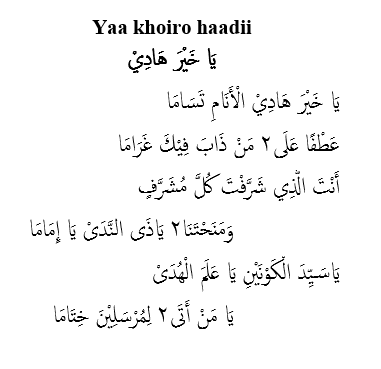 Yaa khoiro haadii
يَا خَيْرَ هَادِيْ
يَا خَيْرَ هَادِيْ الْأَنَامِ تَسَامَا
عَطْفًا عَلَى٢ مَنْ ذَابَ فِيْكَ غَرَامَا
أَنْتَ الَّذِي شَرَّفْتَ كُلَّ مُشَرَّفٍ
وَمَنَحْتَنَا٢ يَاذَى النَّدَىْ يَا إِمَامَا
يَاسَيِّدَ الْكَوْنَيْنِ يَا عَلَمَ الْهُدَىْ
يَا مَنْ أَتَى٢ لِمُرْسَلِيْنَ خِتَامَا